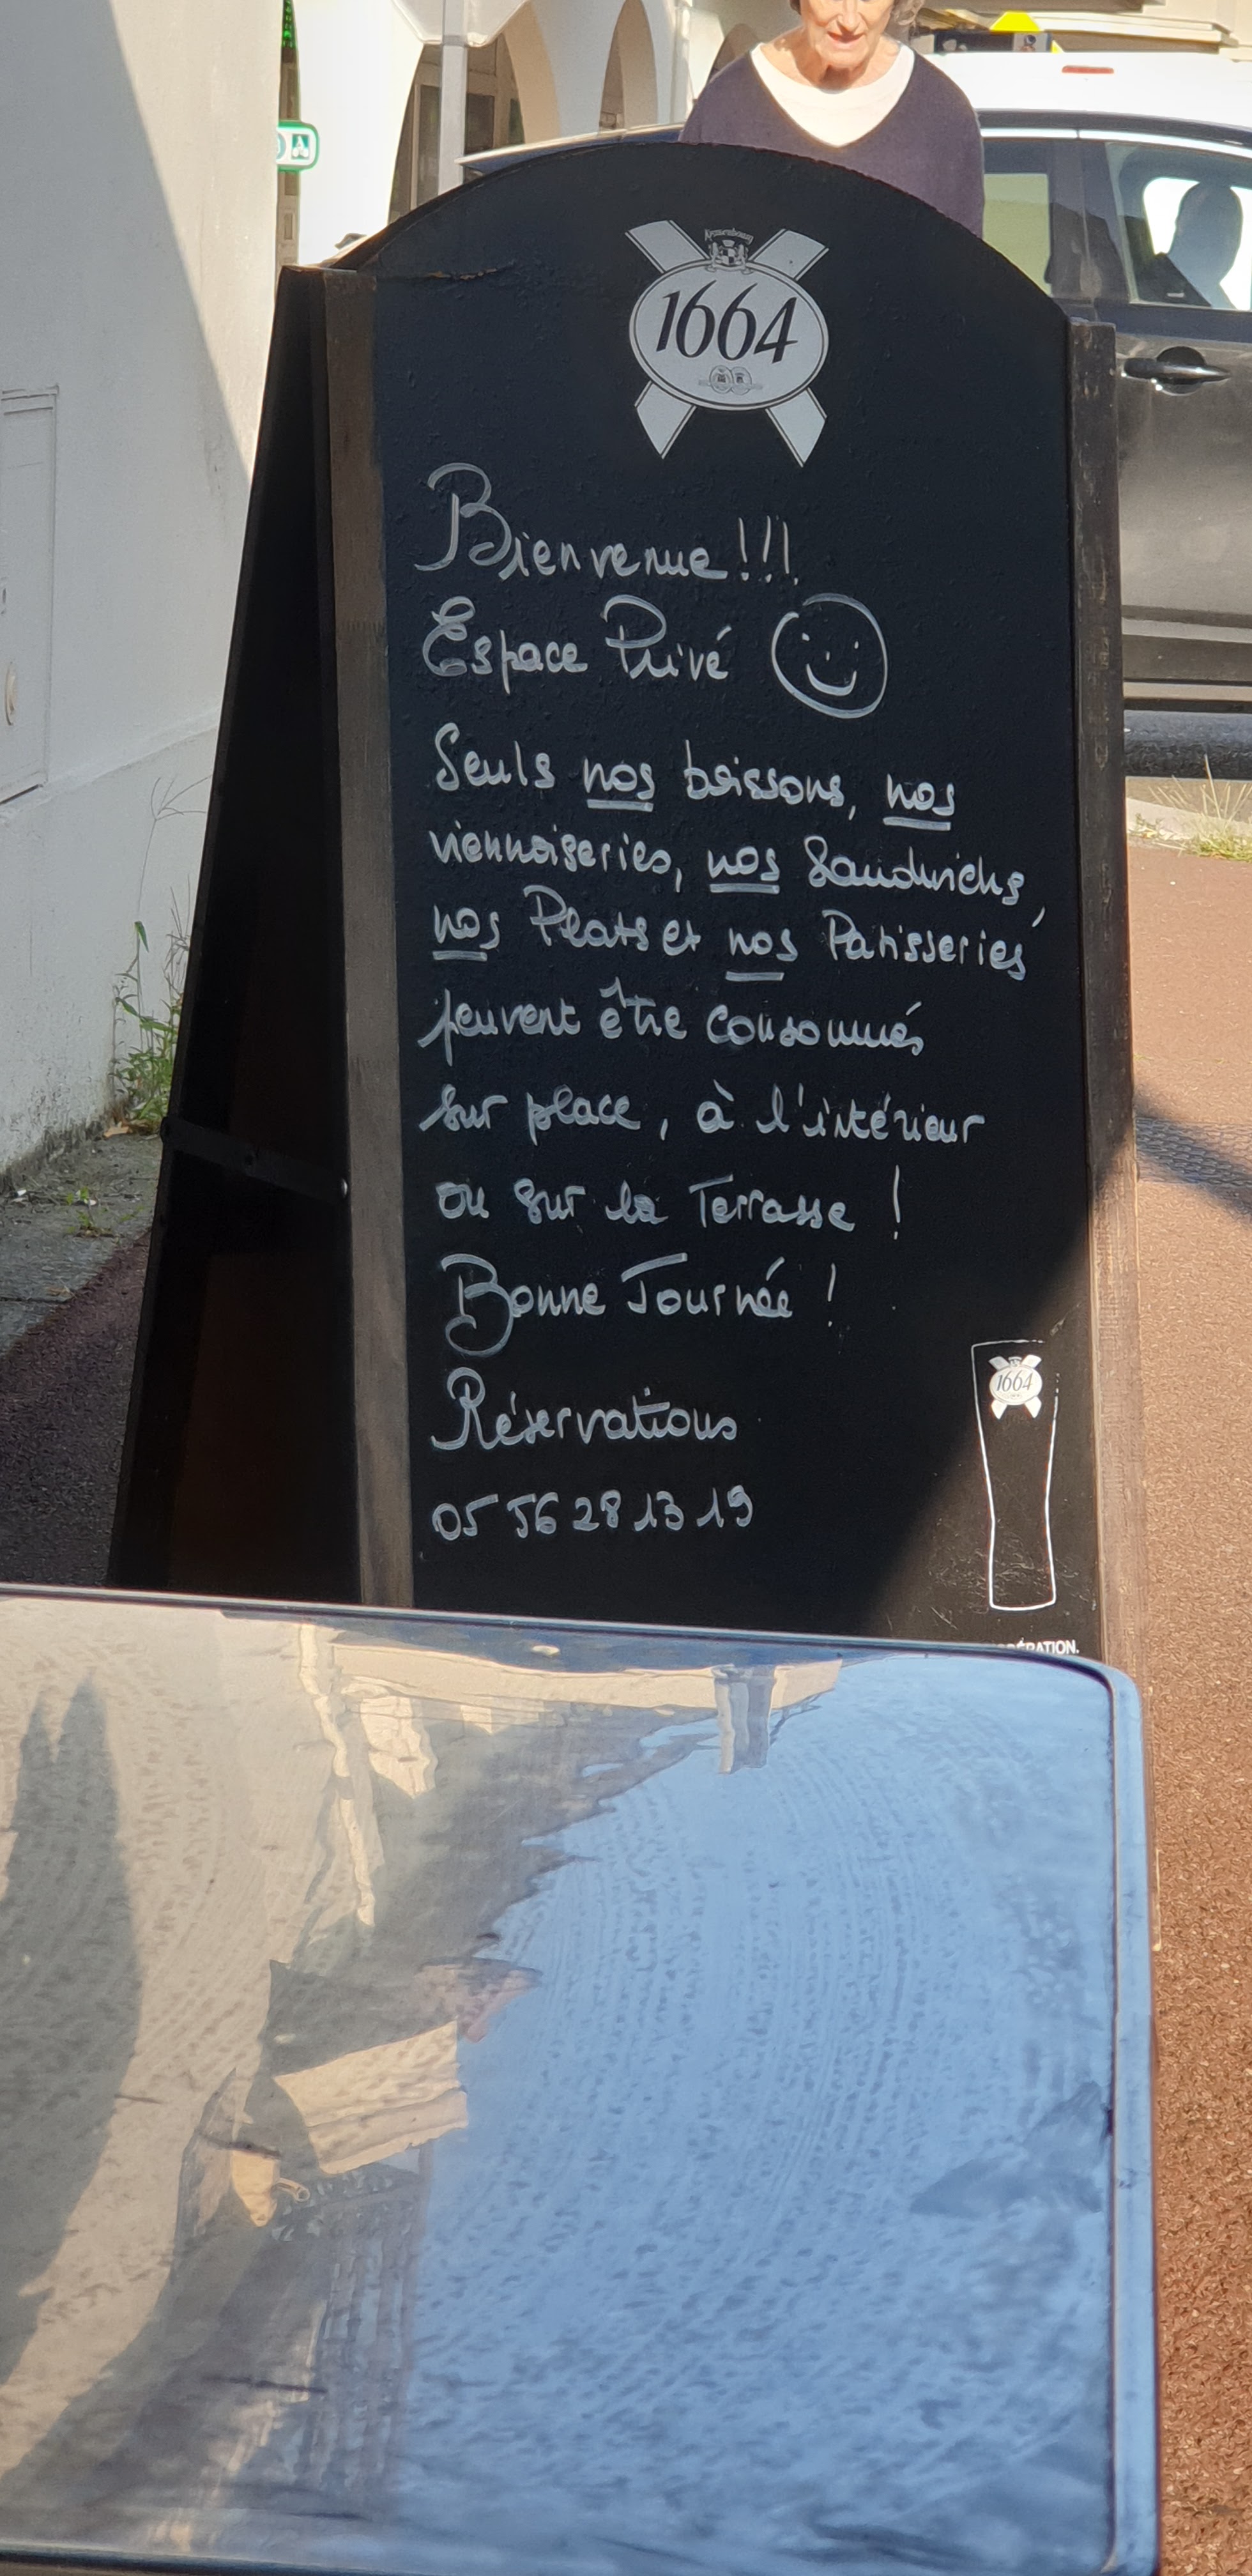 Kronenbourg
1664
Bienvenue !!!
Espace Privé
Seuls nos boissons, nos
viennoiseries, nos Sandwichs,
nos Plats et nos Patisseries
peuvent être consommés
sur place, à l'intérieur
ou sur la Terrasse !
Bonne Journée !
Réservations
05 56 28 13 19
1664